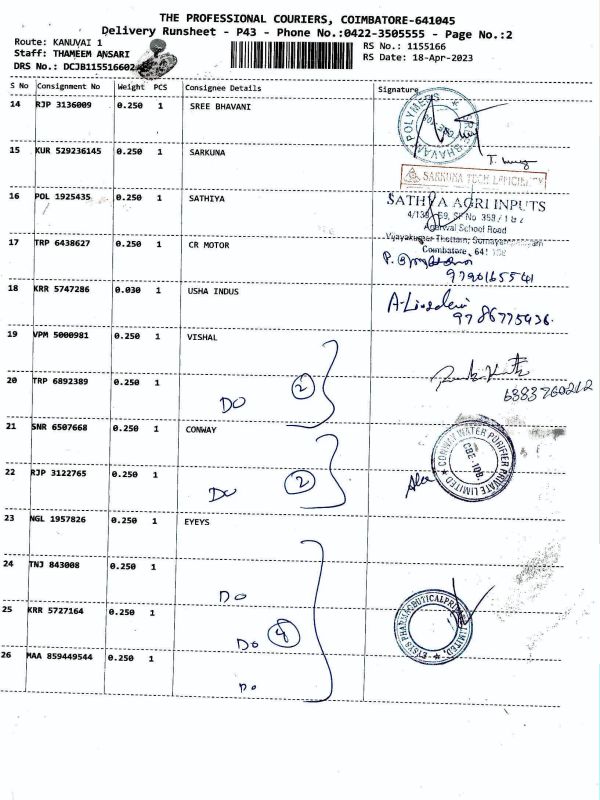 THE PROFESSIONAL COURIERS, COIMBATORE-641045
Delivery Runsheet - P43 - Phone No.:0422-3505555 - Page No.:2
Route: KANUVAI 1
Staff: THAMEEM ANSARI
DRS No.: DCJB115516602
RS No.: 1155166
RS Date: 18-Apr-2023
S No Consignment No Weight PCS Consignee Details Signature
14 RJP 3136009 0.250 1 SREE BHAVANI
15 KUR 529236145 0.250 1 SARKUNA
SARKUNA TECH EFFICIENCY
16 POL 1925435 0.250 1 SATHIYA
SATHYA AGRI INPUTS
Agarwal School Road
17 TRP 6438627 0.250 1 CR MOTOR
Coimbatore
9790165541
18 KRR 5747286 0.030 1 USHA INDUS
9786775436
19 VPM 5000981 0.250 1 VISHAL
20 TRP 6892389 0.250 1 DO 2
6383760212
21 SNR 6507668 0.250 1 CONWAY
CONWAY WATER PURIFIER PRIVATE LIMITED
22 RJP 3122765 0.250 1 DO 2
23 NGL 1957826 0.250 1 EYEYS
24 TNJ 843008 0.250 1 DO
25 KRR 5727164 0.250 1 DO 4
26 MAA 859449544 0.250 1 DO